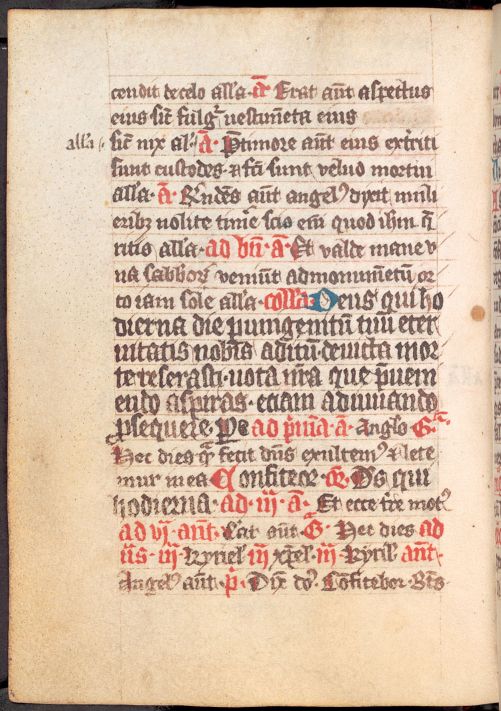 cendit de celo all'a · a᷃ · Erat aut̄ aspectus
eius sic̄ fulg᷑ uestim̄eta eius
all'a sic̄ nix al' · A᷃ · P̄ timore aut̄ eius ext̄riti
sunt custodes · ⁊ f̄ci sunt velud mortui
all'a · A᷃ · R̄ndēs aut̄ angelꝰ dixit muli
eribꝫ nolite tim̄e scio em̄ quod ihm̄ q̄
ritis all'a · ad bn̄ · A᷃ · Et valde mane v
na sabboꝝ veniūt ad monumētū or
to iam sole all'a · coll'a · Deus qui ho
dierna die p̱ unigenitū tuū eter
nitatis nobis aditū deuicta mor
te reserasti · uota nr̄a que p̄ueni
endo aspiras · etiam adiuuando
ꝓsequere · Pe ad p̄mā · A᷃ · Anglꝰ G᷑a
Hec dies q᷃ fecit dn̄s exultemꝰ ⁊ lete
mur in ea Confiteor · Or̄ · Ds̄ qui
hodierna · ad · iij · A᷃ · Et ecce t̄re motꝰ
ad vj · ant̄ · Erat aut̄ · G᷑ · Hec dies ad
iij · Kyriel' iij xp̄el' · iij · Kyril' ant̄
Angelꝰ aut̄ · p̄ · Dix̄ dn̄s · Cōfitebor · Bt̄s